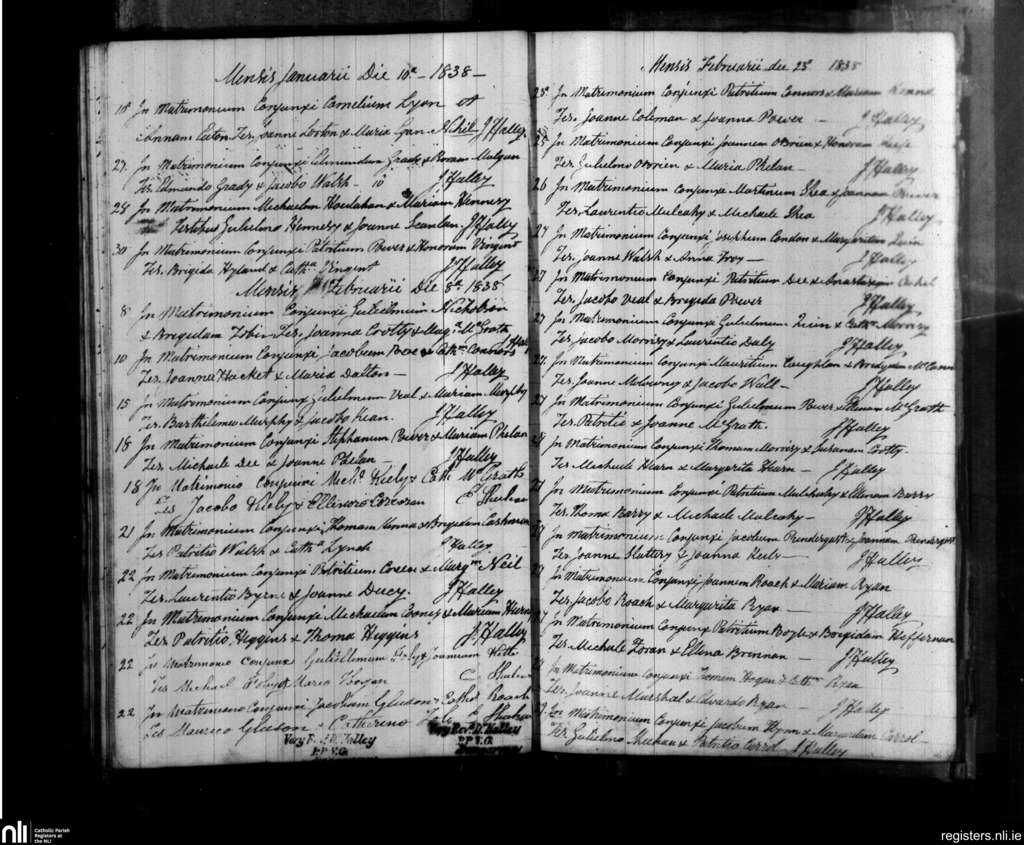 Mensis Januarii Die 10ª – 1838 –
10 In Matrimonium Conjunxi Cornelium Lyon et
Annam Eaton. Tes. Joanne Lorton & Maria Lynn Nihil J Halley
27. In Matrimonium Conjunxi Edmundum Grady &
Tes. Edmundo Grady & Jacobo Walsh – J Halley
28 In Matrimonium Michaelem Houlahan & Mariam Hennesy
Testibus Gulielmo Hennesy & Joanne Scanlan J Halley
30 In Matrimonium Conjunxi Patritium Power & Honoram Vingent
Tes. Brigida Hyland & Catha Vingent J Halley
Mensis Februarii Die 8ª 1838
8 In Matrimonium Conjunxi Gulielmum
& Brigidam Tobin Tes. Joanna Crotty & McGrath J Halley
10 In Matrimonium Conjunxi Jacobum & Cathm Connors
Tes. Joanna Hacket & Maria Dalton – J Halley
15 In Matrimonium Conjunxi Gulielmum Veal & Mariam Murphy
Tes. Bartholemeo Murphy & Jacobo Kean. J Halley
18 In Matrimonium Conjunxi Stephanum Power & Mariam Phelan
Tes. Michaele Dee & Joanne Phelan – J Halley
18 In Matrimonio conjunxi Michl Kiely & Cath McGrath
Tes Jacobo Kiely & Ellenora Corcoran
21 In Matrimonium Conjunxi Thomam & Brigidam
Tes Patritio Walsh & Catha Lynch J Halley
22 In Matrimonium Conjunxi Patritium & Margm Neil
Tes. Laurentio Byrne & Joanne Ducy. J Halley
22 In Matrimonium Conjunxi Michaelem & Mariam
Tes Patritio Higgins & Thoma Higgins J Halley
22 In Matrimonio conjunxi Gulielmum Foley & Joannam
Tes Michael Foley & Maria Hogan
22 In Matrimonio Conjunxi Jacobum Gleeson & Cath Roach
Tes Maurico Gleeson & Catherina
Very Revd D. Halley
P.P. V.G.
Very Revd D. Halley
P.P. V.G.
Mensis Februarii die 25ª 1838
25 In Matrimonium Conjunxi Patritium Connors & Mariam
Tes. Joanne Coleman & Joanna Power – J Halley
25 In Matrimonium Conjunxi Joannem OBrien & Honoram
Tes Gulielmo OBrien & Maria Phelan – J Halley
26 In Matrimonium Conjunxi Martinum Shea & Joannam Power
Tes. Laurentio Mulcahy & Michaele Shea J Halley
27 In Matrimonium Conjunxi Josephum Condon & Margaritam Quin
Tes. Joanne Walsh & Anna Troy – J Halley
27 In Matrimonium Conjunxi Patritium Dee & Anastasiam
Tes. Jacobo Veal & Brigida Power J Halley
27 In Matrimonium Conjunxi Gulielmum Quin & Cathm Morrisy
Tes Jacobo Morrisy & Laurentio Daly J Halley
27. In Matrimonium Conjunxi Mauritium Coughlan & Bridgdam
Tes. Joanne & Jacobo Wall – J Halley
27 In Matrimonium Conjunxi Gulielmum Power & McGrath
Tes. Patritio & Joanne McGrath. J Halley
In Matrimonium Conjunxi Thomam Morrisy & Susanam Crotty.
Tes. Michaele Hearn & Margarita Hearn – J Halley
In Matrimonium Conjunxi Patritium Mulcahy & Ellenam Barry
Tes. Thoma Barry & Michaele Mulcahy – J Halley
In Matrimonium Conjunxi Jacobum Prendergast & Joannam Prendergast
Tes. Joanne Slattery & Joanna Keily – J Halley
In Matrimonium Conjunxi Joannem Roach & Mariam Ryan
Tes. Jacobo Roach & Margarita Ryan – J Halley
In Matrimonium Conjunxi Patritium Boyle & Brigidam Heffernan
Tes. Michaele Foran & Ellena Brennan – J Halley
In Matrimonium Conjunxi Hogan & Cathm Ryan
Tes. Joanne Marshal & Edvardo Ryan – J Halley
In Matrimonium Conjunxi Jacobum Flynn & Margaritam Carrol –
Tes. Gulielmo & Patritio Carrol J Halley
nli
Catholic Parish
Registers at
the NLI
registers.nli.ie